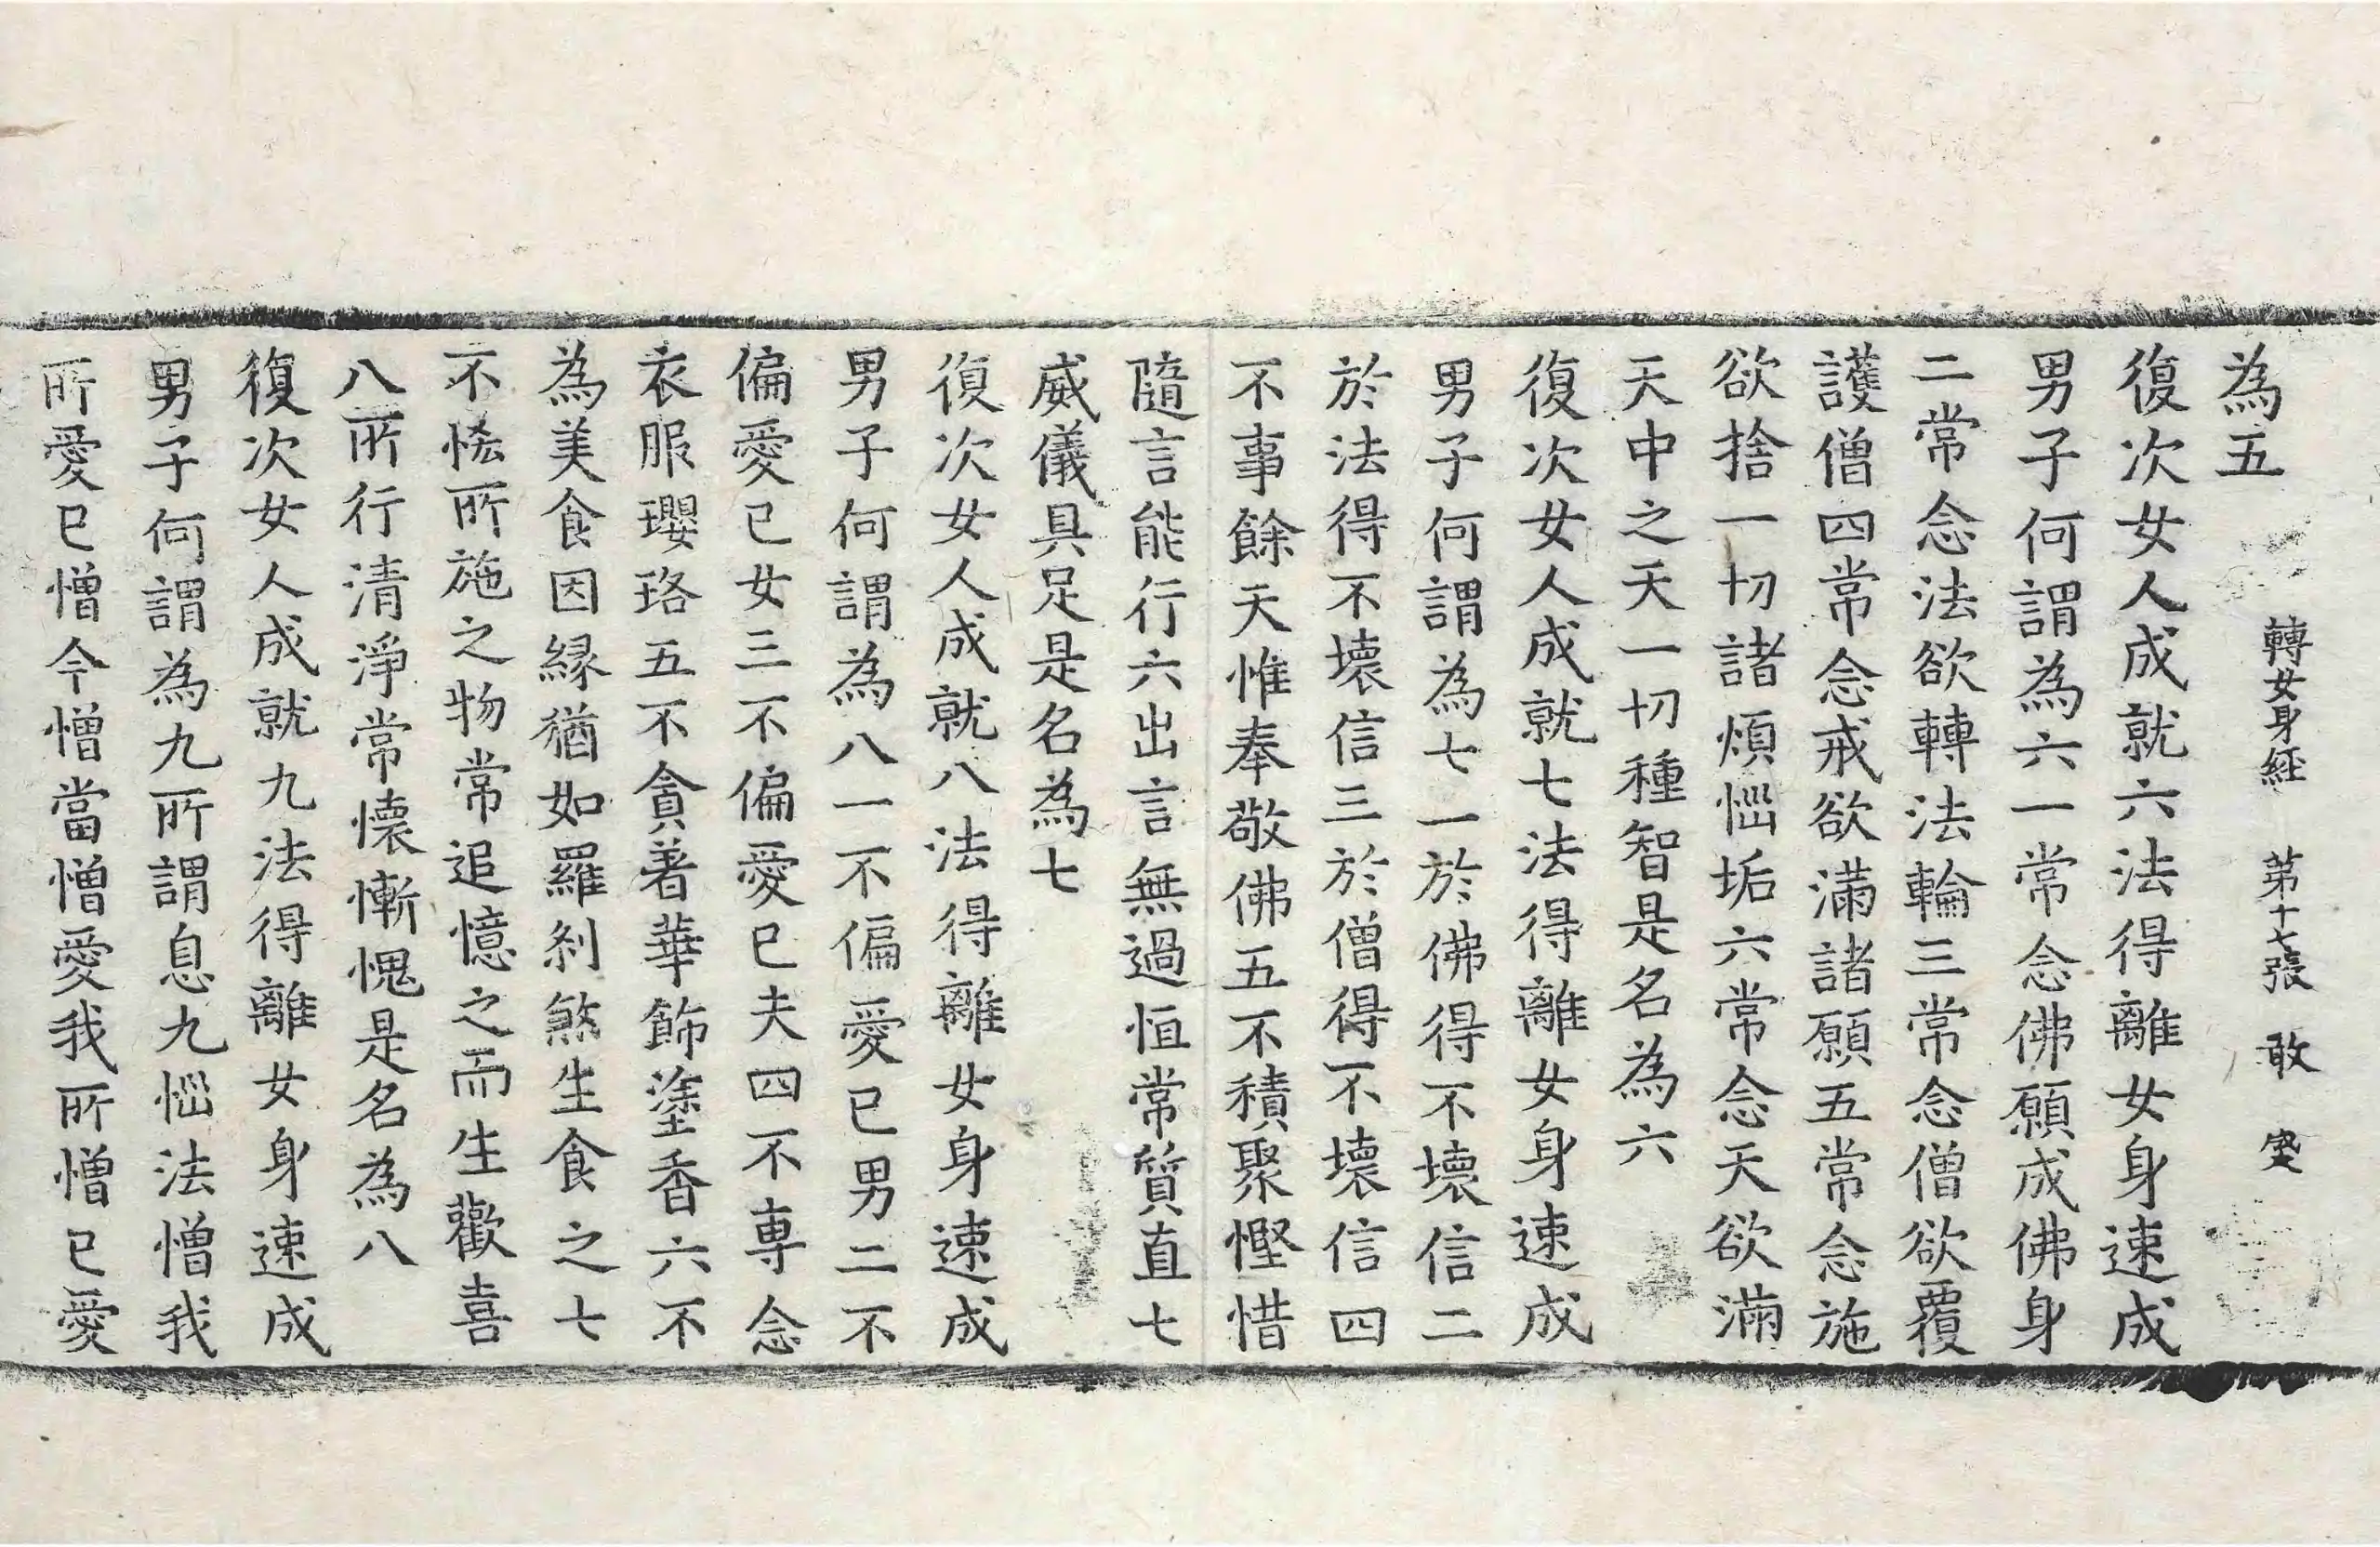 為五
轉女身經 第十七張 敢 㝎
復次女人成就六法得離女身速成
男子何謂為六一常念佛願成佛身
二常念法欲轉法輪三常念僧欲覆
護僧四常念戒欲滿諸願五常念施
欲捨一切諸煩惱垢六常念天欲滿
天中之天一切種智是名為六
復次女人成就七法得離女身速成
男子何謂為七一於佛得不壞信二
於法得不壞信三於僧得不壞信四
不事餘天惟奉敬佛五不積聚慳惜
隨言能行六出言無過恒常質直七
威儀具足是名為七
復次女人成就八法得離女身速成
男子何謂為八一不偏愛已男二不
偏愛已女三不偏愛已夫四不専念
衣服瓔珞五不貪著華飾塗香六不
為美食因縁猶如羅剎煞生食之七
不悋所施之物常追憶之而生歡喜
八所行清淨常懷慚愧是名為八
復次女人成就九法得離女身速成
男子何謂為九所謂息九惱法憎我
所愛已憎今憎當憎愛我所憎已愛